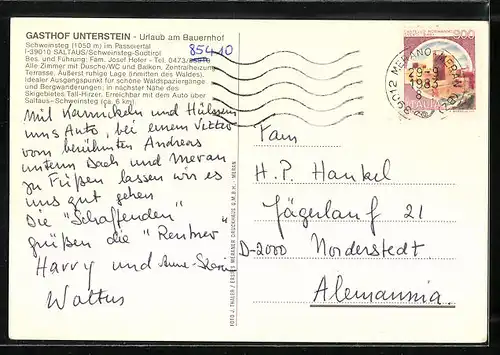 GASTHOF UNTERSTEIN - Urlaub am Bauernhof
Schweinsteg (1050 m) im Passeiertal
I-39010 SALTAUS/Schweinsteg-Südtirol
Bes. und Führung: Fam. Josef Hofer - Tel. 0473/
85410
Alle Zimmer mit Dusche/WC und Balkon, Zentralheizung,
Terrasse. Äußerst ruhige Lage (inmitten des Waldes).
Idealer Ausgangspunkt für schöne Waldspaziergänge
und Bergwanderungen; in nächster Nähe des
Skigebietes Tall-Hirzer. Erreichbar mit dem Auto über
Saltaus-Schweinsteg (ca. 6 km).
Mit Karnickeln und
ums Auto, bei einem
vom berühmten Andreas
unterm Dach und Meran
zu Füßen lassen wir es
uns gut gehen
Die "Schaffenden"
grüßen die "Rentner"
Harry und
FOTO J. THALER / ERSTES MERANER DRUCKHAUS G.M.B.H. - MERAN
900
39012 MERANO
29-9
1983
ITALIA
Fam
H.P. Hankel
Jägerlauf 21
D-2000 Norderstedt
Alemannia